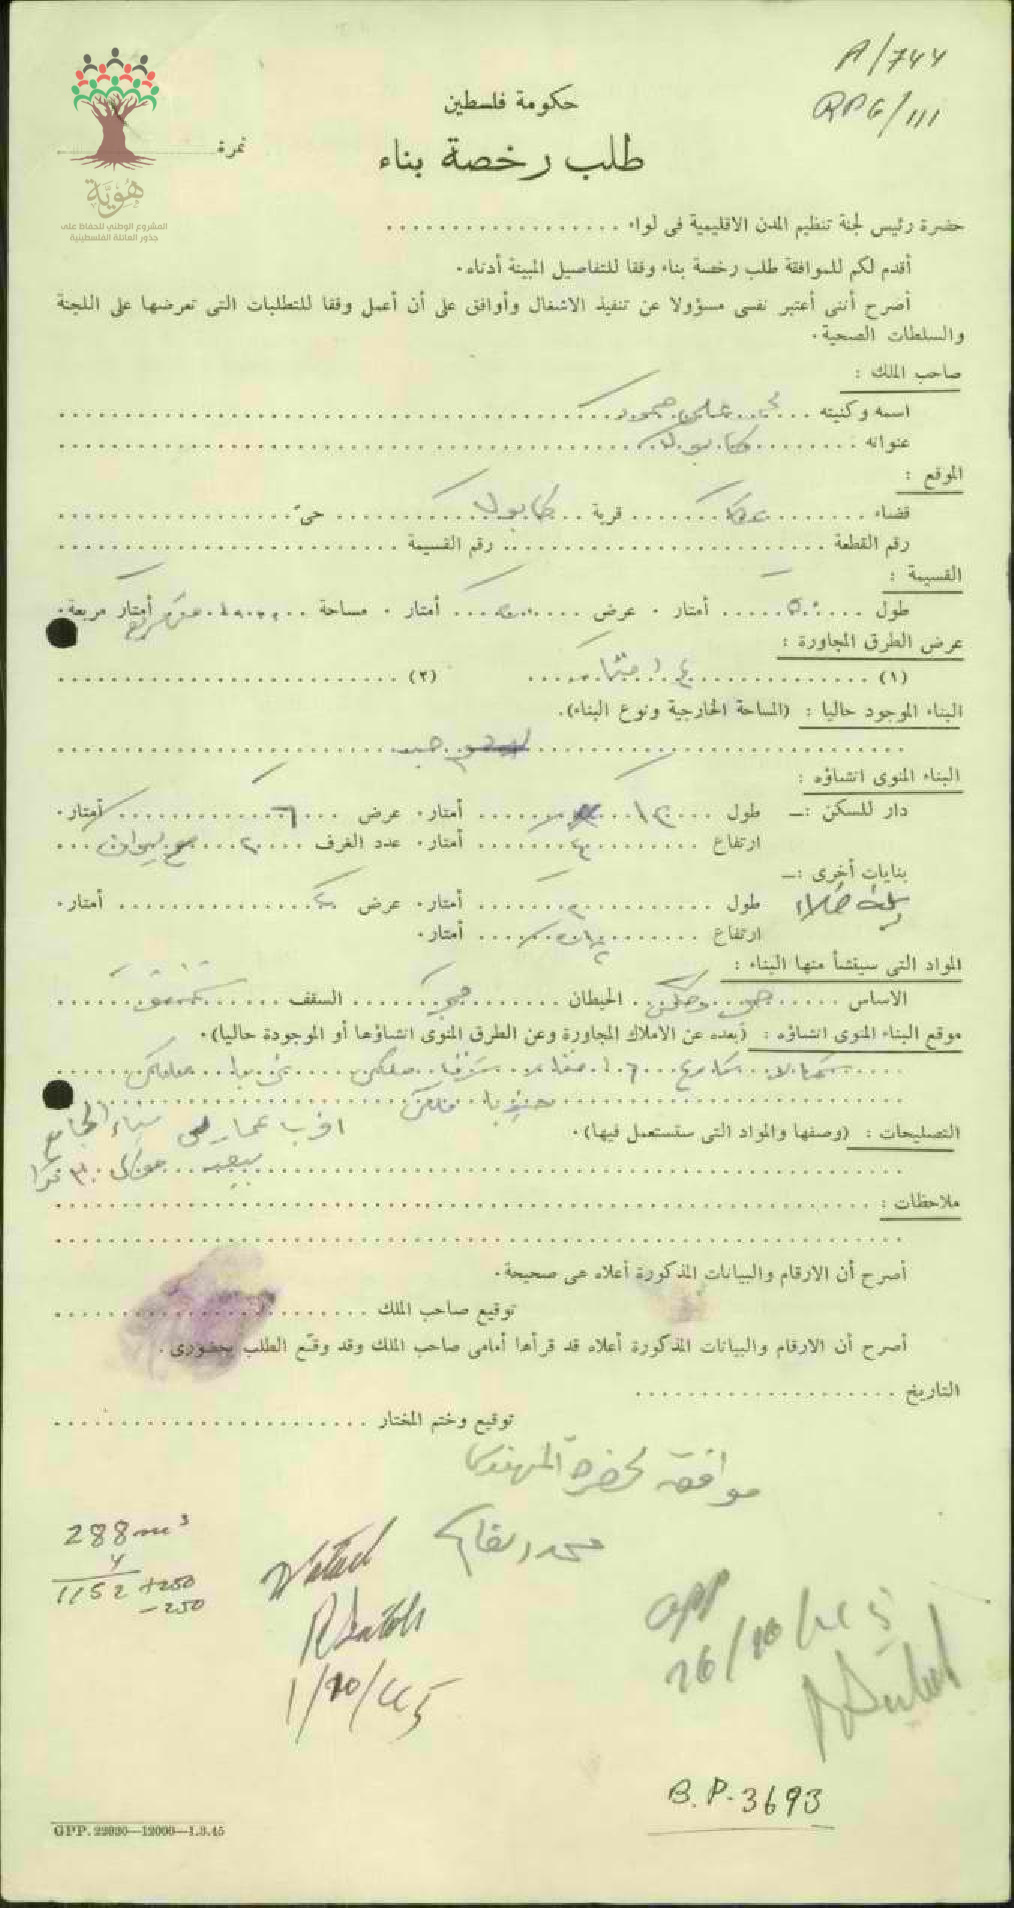 A/744
RPG/111
حكومة فلسطين
طلب رخصة بناء
نمرة
هُوِيَّة
المشروع الوطني للحفاظ على
جذور العائلة الفلسطينية
حضرة رئيس لجنة تنظيم المدن الاقليمية فى لواء
أقدم لكم للموافقة طلب رخصة بناء وفقا للتفاصيل المبينة أدناه.
أصرح أننى أعتبر نفسى مسؤولا عن تنفيذ الاشغال وأوافق على أن أعمل وفقا للمتطلبات التى تعرضها على اللجنة
والسلطات الصحية.
صاحب الملك :
اسمه وكنيته علي حمود
عنوانه : كابول
الموقع :
قضاء عكا قرية كابول حىّ
رقم القطعة رقم القسيمة
القسيمة :
طول ٥٠ أمتار. عرض أمتار. مساحة أمتار مربعة.
عرض الطرق المجاورة :
(١) (٢)
البناء الموجود حاليا : (المساحة الخارجية ونوع البناء).
البناء المنوى انشاؤه :
دار للسكن :ـ طول ١٢ أمتار. عرض ٦ أمتار.
ارتفاع ٤ أمتار. عدد الغرف ٢
بنايات أخرى :ـ
بيت خلاء طول ٢ أمتار. عرض ٢ أمتار.
ارتفاع أمتار.
المواد التى سينشأ منها البناء :
الاساس الحيطان حجر السقف
موقع البناء المنوى انشاؤه : (بعده عن الاملاك المجاورة وعن الطرق المنوى انشاؤها أو الموجودة حاليا).
شمالا شارع شرقا ملكي غربا ملكي
جنوبا ملكي
التصليحات : (وصفها والمواد التى ستستعمل فيها).
اقرب عمار بناء الجامع
يبعد حوالي ٣٠ مترا
ملاحظات :
أصرح أن الارقام والبيانات المذكورة أعلاه هى صحيحة.
توقيع صاحب الملك
أصرح أن الارقام والبيانات المذكورة أعلاه قد قرأها أمامى صاحب الملك وقد وقّع الطلب بحضورى.
التاريخ
توقيع وختم المختار
موافقة لحضرة المهندس
288 m³
4
1152 +250
-250
1/10/45
app
26/10/45
B.P. 3693
GPP. 22920—12000—1.3.45